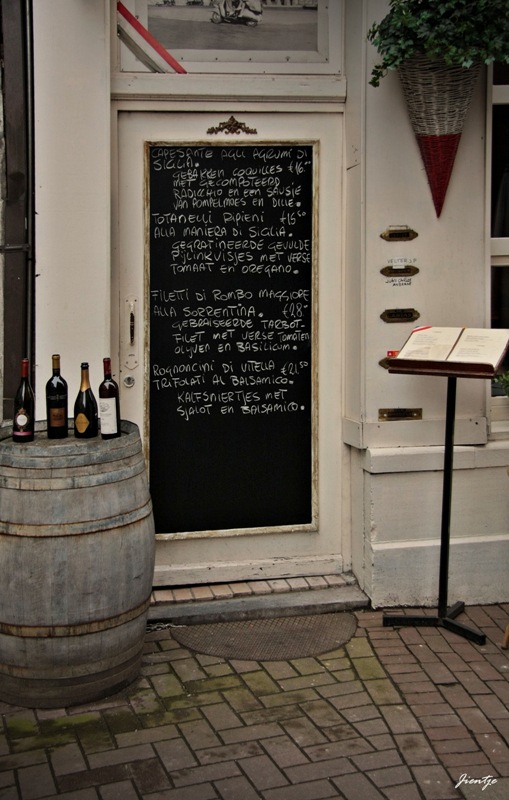 CAPESANTE AGLI AGRUMI DI
SICILIA.
GEBAKKEN COQUILLES €16.50
MET GECOMPOTEERD
RADICCHIO EN EEN SAUSJE
VAN POMPELMOES EN DILLE.
TOTANELLI RIPIENI €16.50
ALLA MANIERA DI SIGLIA.
GEGRATINEERDE GEVULDE
PIJLINKVISJES MET VERSE
TOMAAT EN OREGANO.
FILETTI DI ROMBO MAGGIORE
ALLA SORRENTINA. €28.50
GEBRAISEERDE TARBOT-
FILET MET VERSE TOMATEN
OLIJVEN EN BASILICUM.
ROGNONCINI DI VITELLA €21.50
TRIFOLATI AL BALSAMICO.
KALFSNIERTJES MET
SJALOT EN BALSAMICO.
Jientje